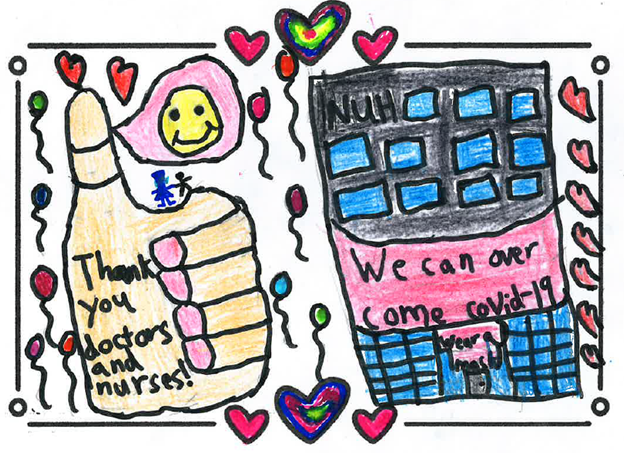 Thank
you
doctors
and
nurses!
NUH
We can over
come covid-19
Wear a
mask